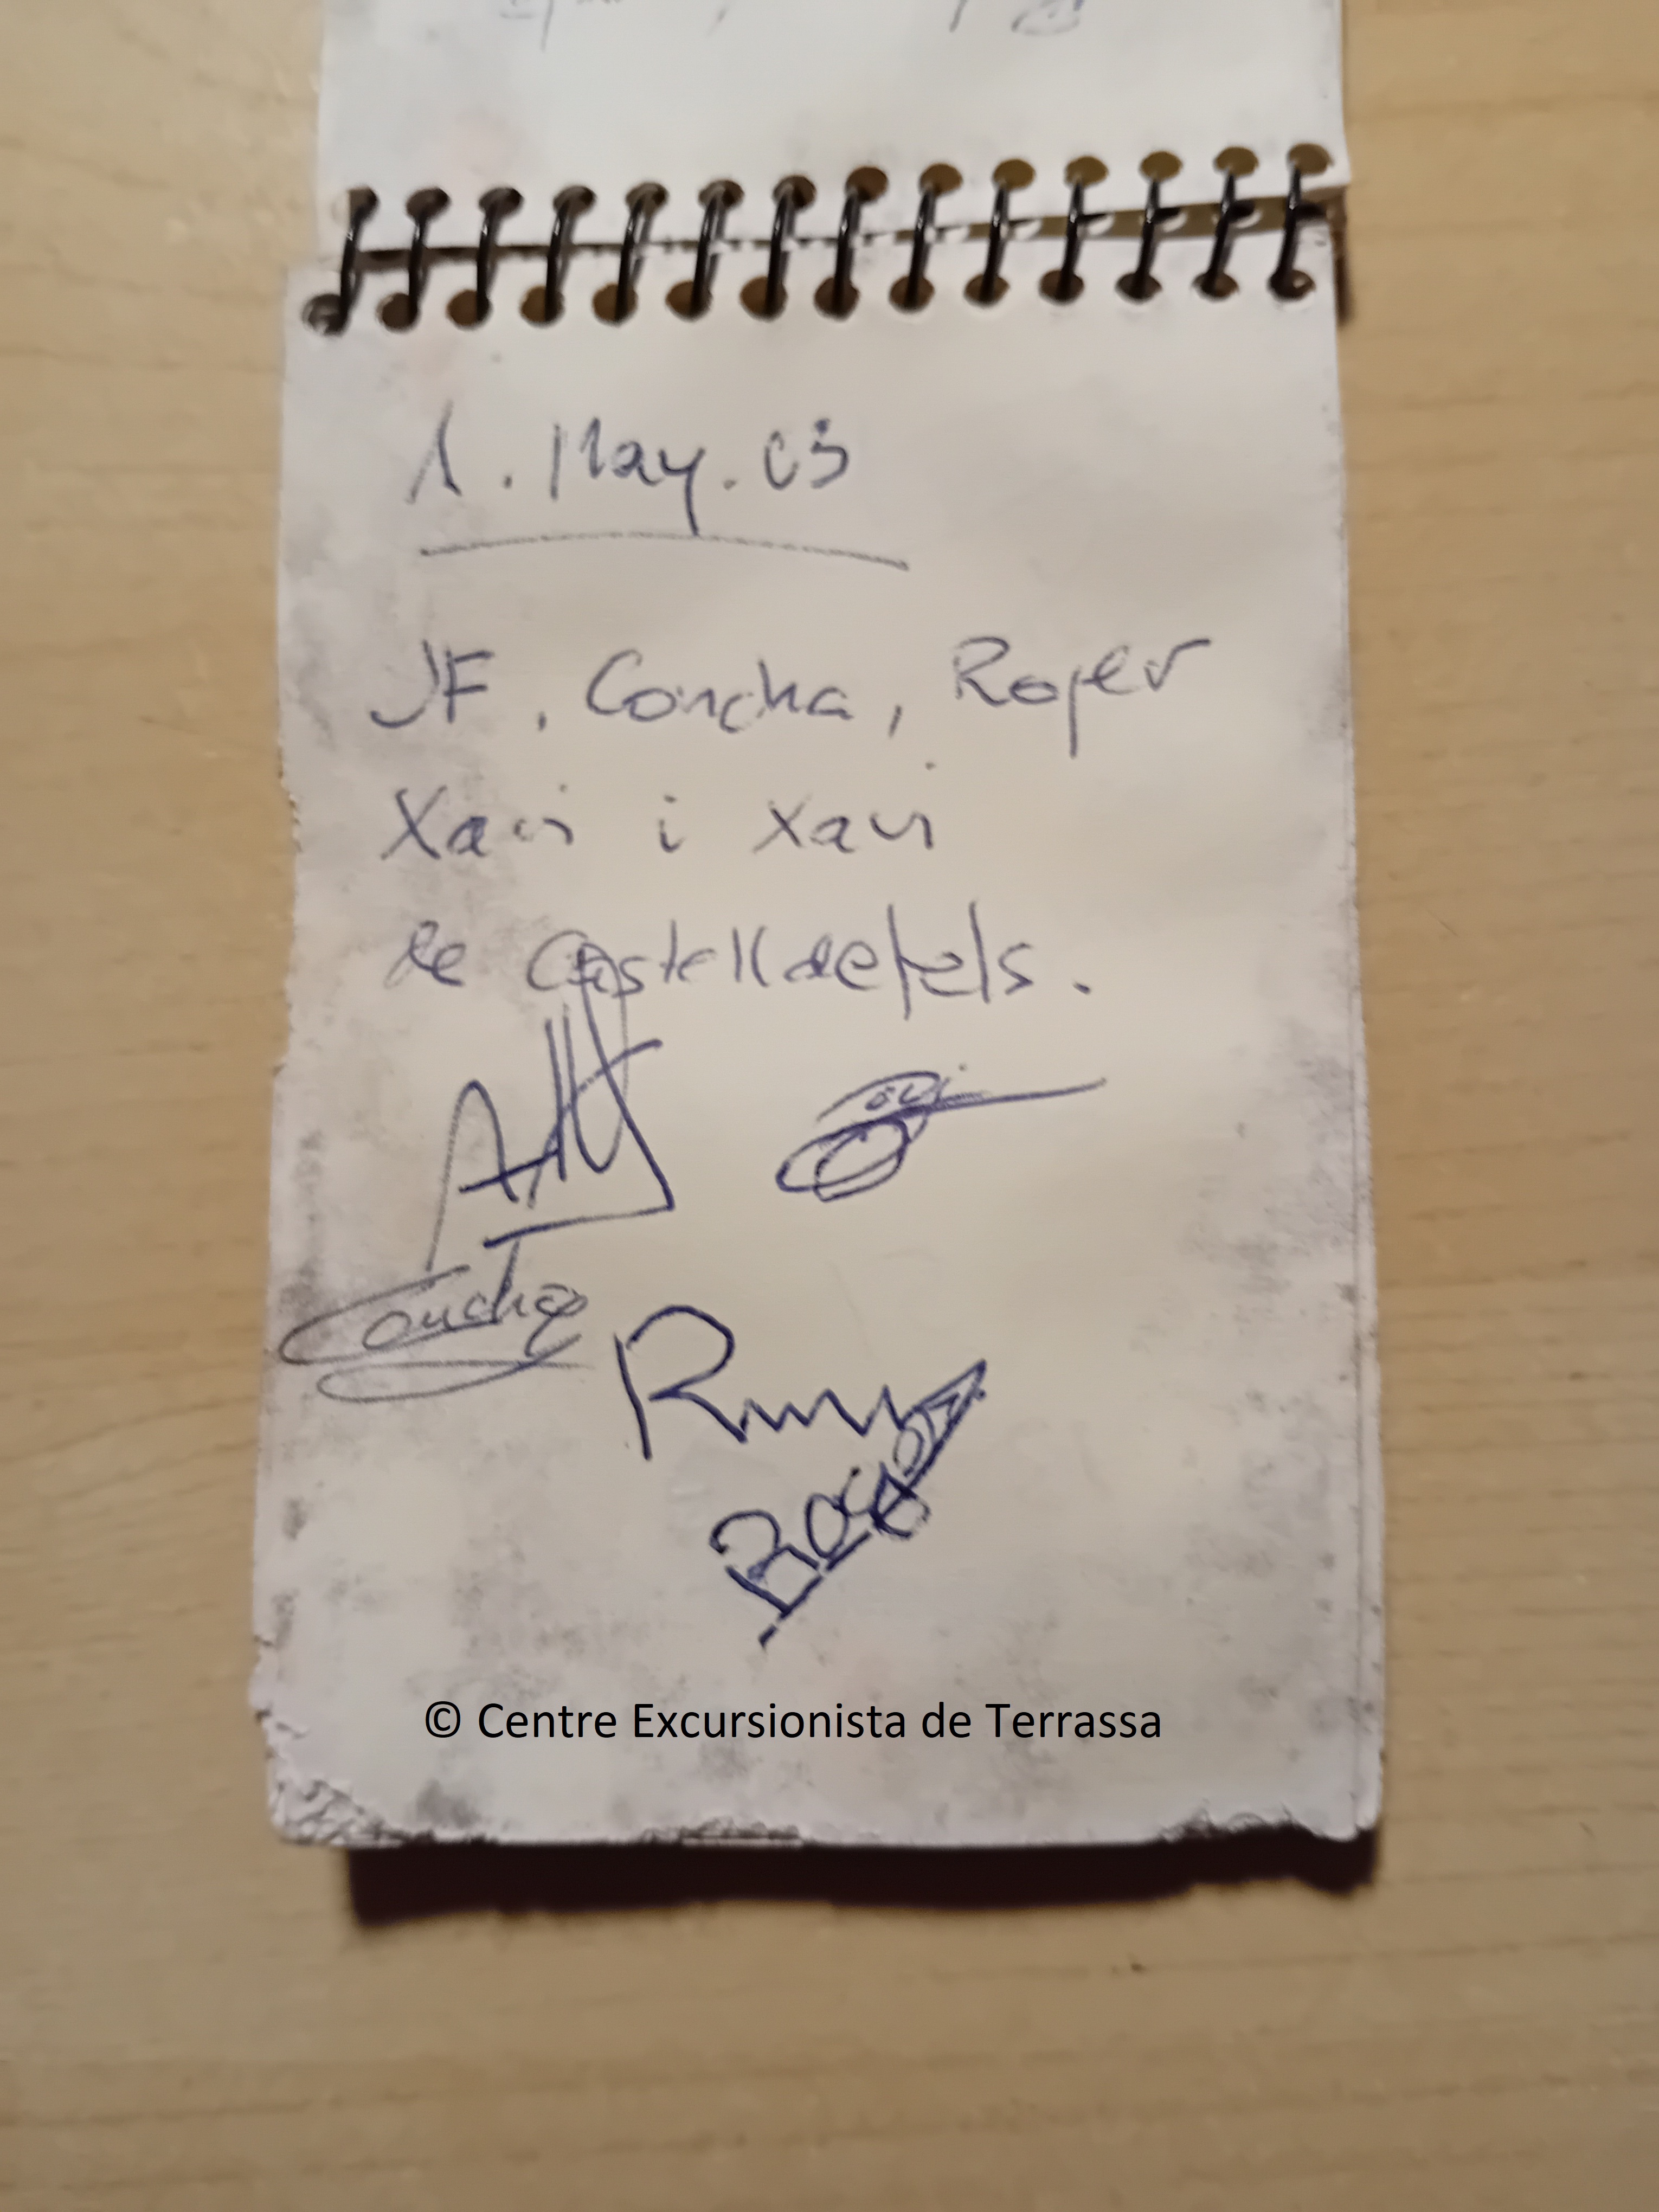 1. May. 03
JF, Concha, Roger
Xavi i Xavi
de Castelldefels.
Concha
© Centre Excursionista de Terrassa